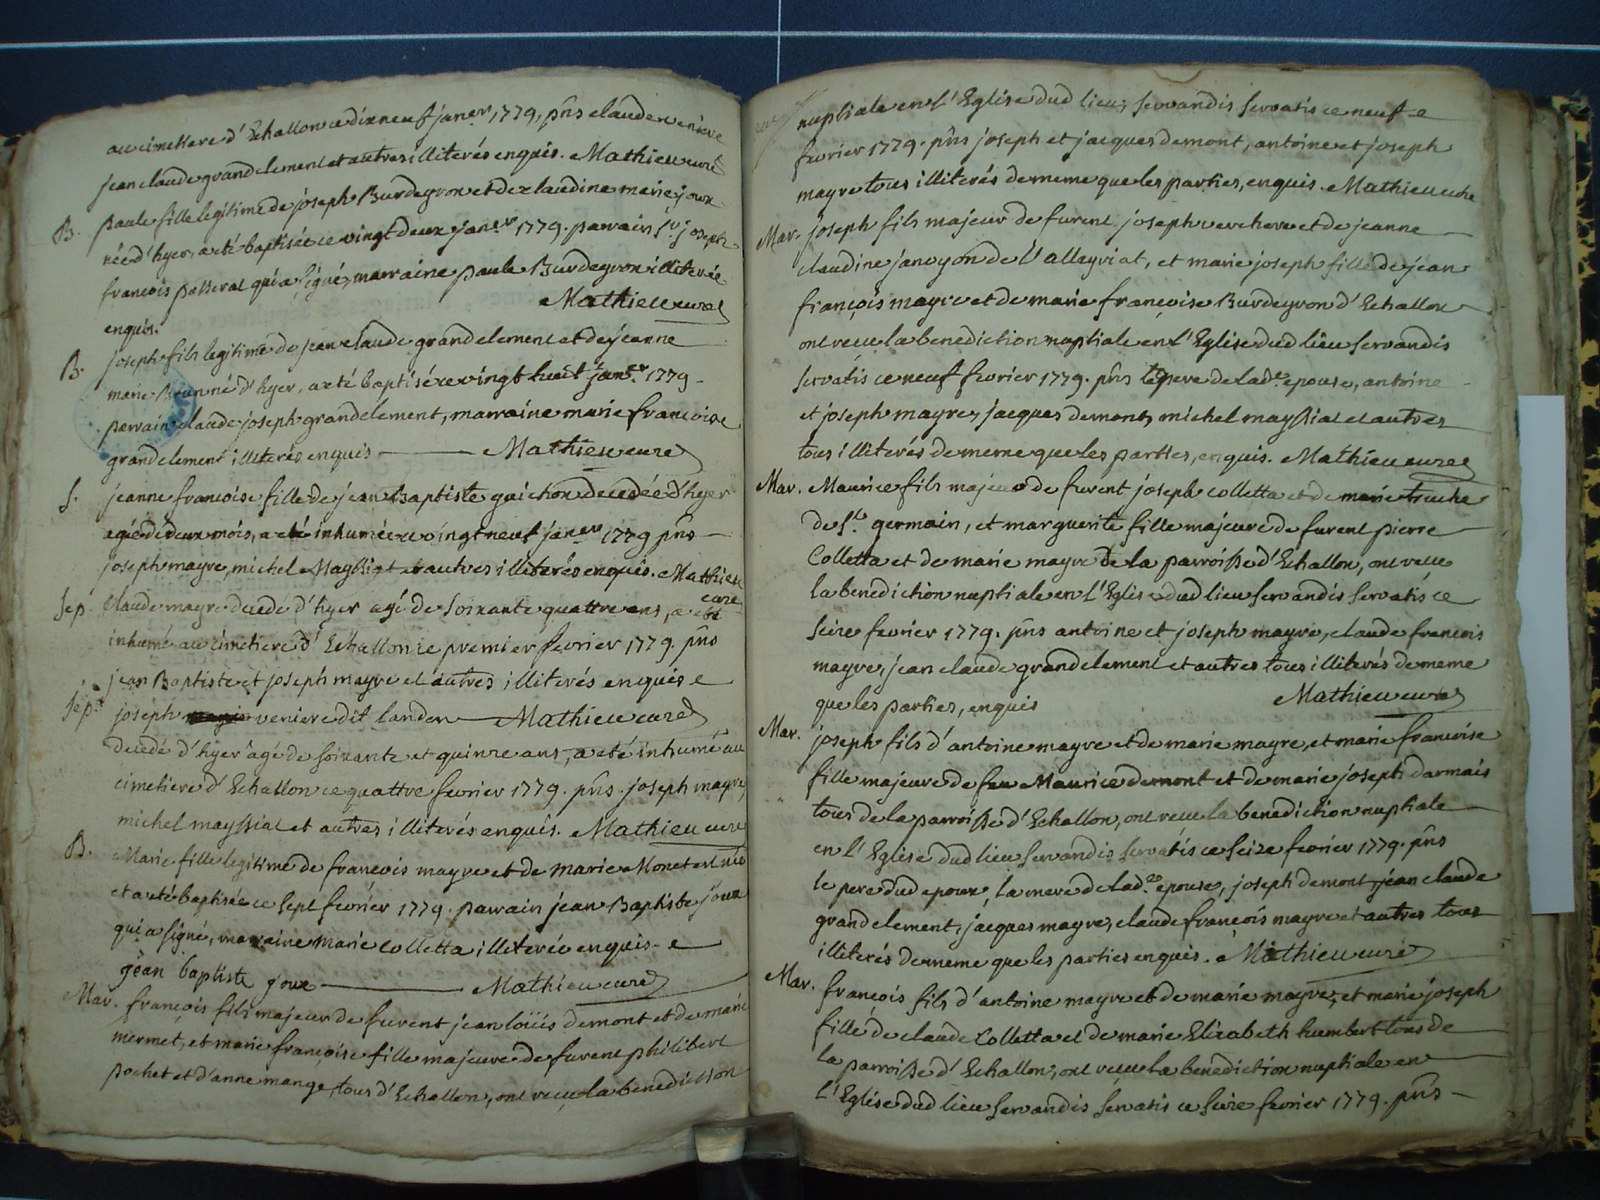 au cimettere d'Echallon ce dix neuf janer 1779, pns claude veniere
jean claude grandclement et autres illiterés enquis. Mathieu curé
B. paule fille legitime de joseph Burdeyron et de claudine marie joux
née d'hyer, a eté baptisée ce vingt deux janer 1779. parrain sr joseph
françois passerat qui a signé, marraine paule Burdeyron illiterée
enquis. Mathieu curé
B. joseph fils legitime de jean claude grandclement et de jeanne
marie né d'hyer, a eté baptisé ce vingt huit janer 1779
parrain claude joseph grandclement, marraine marie francoise
grandclement illiterés enquis Mathieu curé
S. jeanne francoise fille de jean Baptiste guichon decedée d'hyer
agée de deux mois, a eté inhumée ce vingt neuf janer 1779 pns
joseph mayre, michel Mayssiat et autres illiterés enquis. Mathieu
curé
Sep. Claude mayre decedé d'hyer agé de soixante quattre ans, a eté
inhumé au cimetiere d'Echallon ce premier fevrier 1779. pns
jean Baptiste et joseph mayre et autres illiterés enquis
Sep. joseph veniere dit landon Mathieu curé
decedé d'hyer agé de soixante et quinze ans, a eté inhumé au
cimetiere d'Echallon ce quattre fevrier 1779. pns. joseph mayre,
michel mayssiat et autres illiterés enquis. Mathieu curé
B. Marie fille legitime de francois mayre et de marie Monet est née
et a eté baptisée ce sept fevrier 1779. parrain jean Baptiste joux
qui a signé, marraine marie colletta illiterée enquis
jean baptiste joux Mathieu curé
Mar. francois fils majeur de furent jean loüis demont et de marie
mermet, et marie françoise fille majeure de furent philibert
pochet et d'anne mange, tous d'Echallon, ont reçu la benediction
nuptiale en l'Eglise dud lieu, servandis servatis ce neuf
fevrier 1779. pns joseph et jacques demont, antoine et joseph
mayre tous illiterés de meme que les parties, enquis. Mathieu curé
Mar. joseph fils majeur de furent joseph verchere et de jeanne
claudine janoyon de l'alleyriat, et marie joseph fille de jean
françois mayre et de marie françoise Burdeyron d'Echallon
ont reçu la benediction nuptiale en l'Eglise dud lieu servandis
servatis ce neuf fevrier 1779. pns le pere de lade epouse, antoine
et joseph mayre, jacques demont, michel mayssiat et autres
tous illiterés de meme que les parties, enquis. Mathieu curé
Mar. Maurice fils majeur de furent joseph colletta et de marie truche
de St germain, et marguerite fille majeure de furent pierre
Colletta et de marie mayre de la parroisse d'Echallon, ont reçu
la benediction nuptiale en l'Eglise dud lieu servandis servatis ce
seize fevrier 1779. pns antoine et joseph mayre, claude francois
mayre, jean claude grandclement et autres tous illiterés de meme
que les parties, enquis Mathieu curé
Mar. joseph fils d'antoine mayre et de marie mayre, et marie francoise
fille majeure de feu Maurice demont et de marie joseph darmais
tous de la parroisse d'Echallon, ont reçu la benediction nuptiale
en l'Eglise dud lieu servandis servatis ce seize fevrier 1779. pns
le pere dud epoux, la mere de lade epouse, joseph demont, jean claude
grandclement, jacques mayre, claude francois mayre et autres tous
illiterés de meme que les parties enquis. Mathieu curé
Mar. francois fils d'antoine mayre et de marie mayre, et marie joseph
fille de claude Colletta et de marie Elizabeth humbert tous de
la parroisse d'Echallon, ont reçu la benediction nuptiale en
l'Eglise dud lieu servandis servatis ce seize fevrier 1779. pns